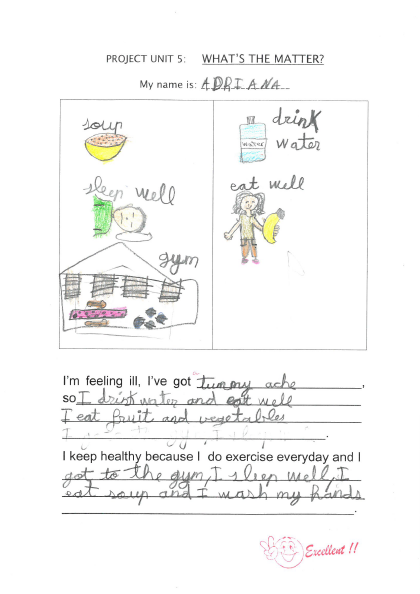 PROJECT UNIT 5: WHAT'S THE MATTER?
My name is: ADRIANA
soup
drink
water
WATER
sleep well
eat well
gym
I'm feeling ill, I've got tummy ache,
so I drink water and eat well
I eat fruit and vegetables
.
I keep healthy because I do exercise everyday and I
got to the gym, I sleep well, I
eat soup and I wash my hands
.
Excellent !!